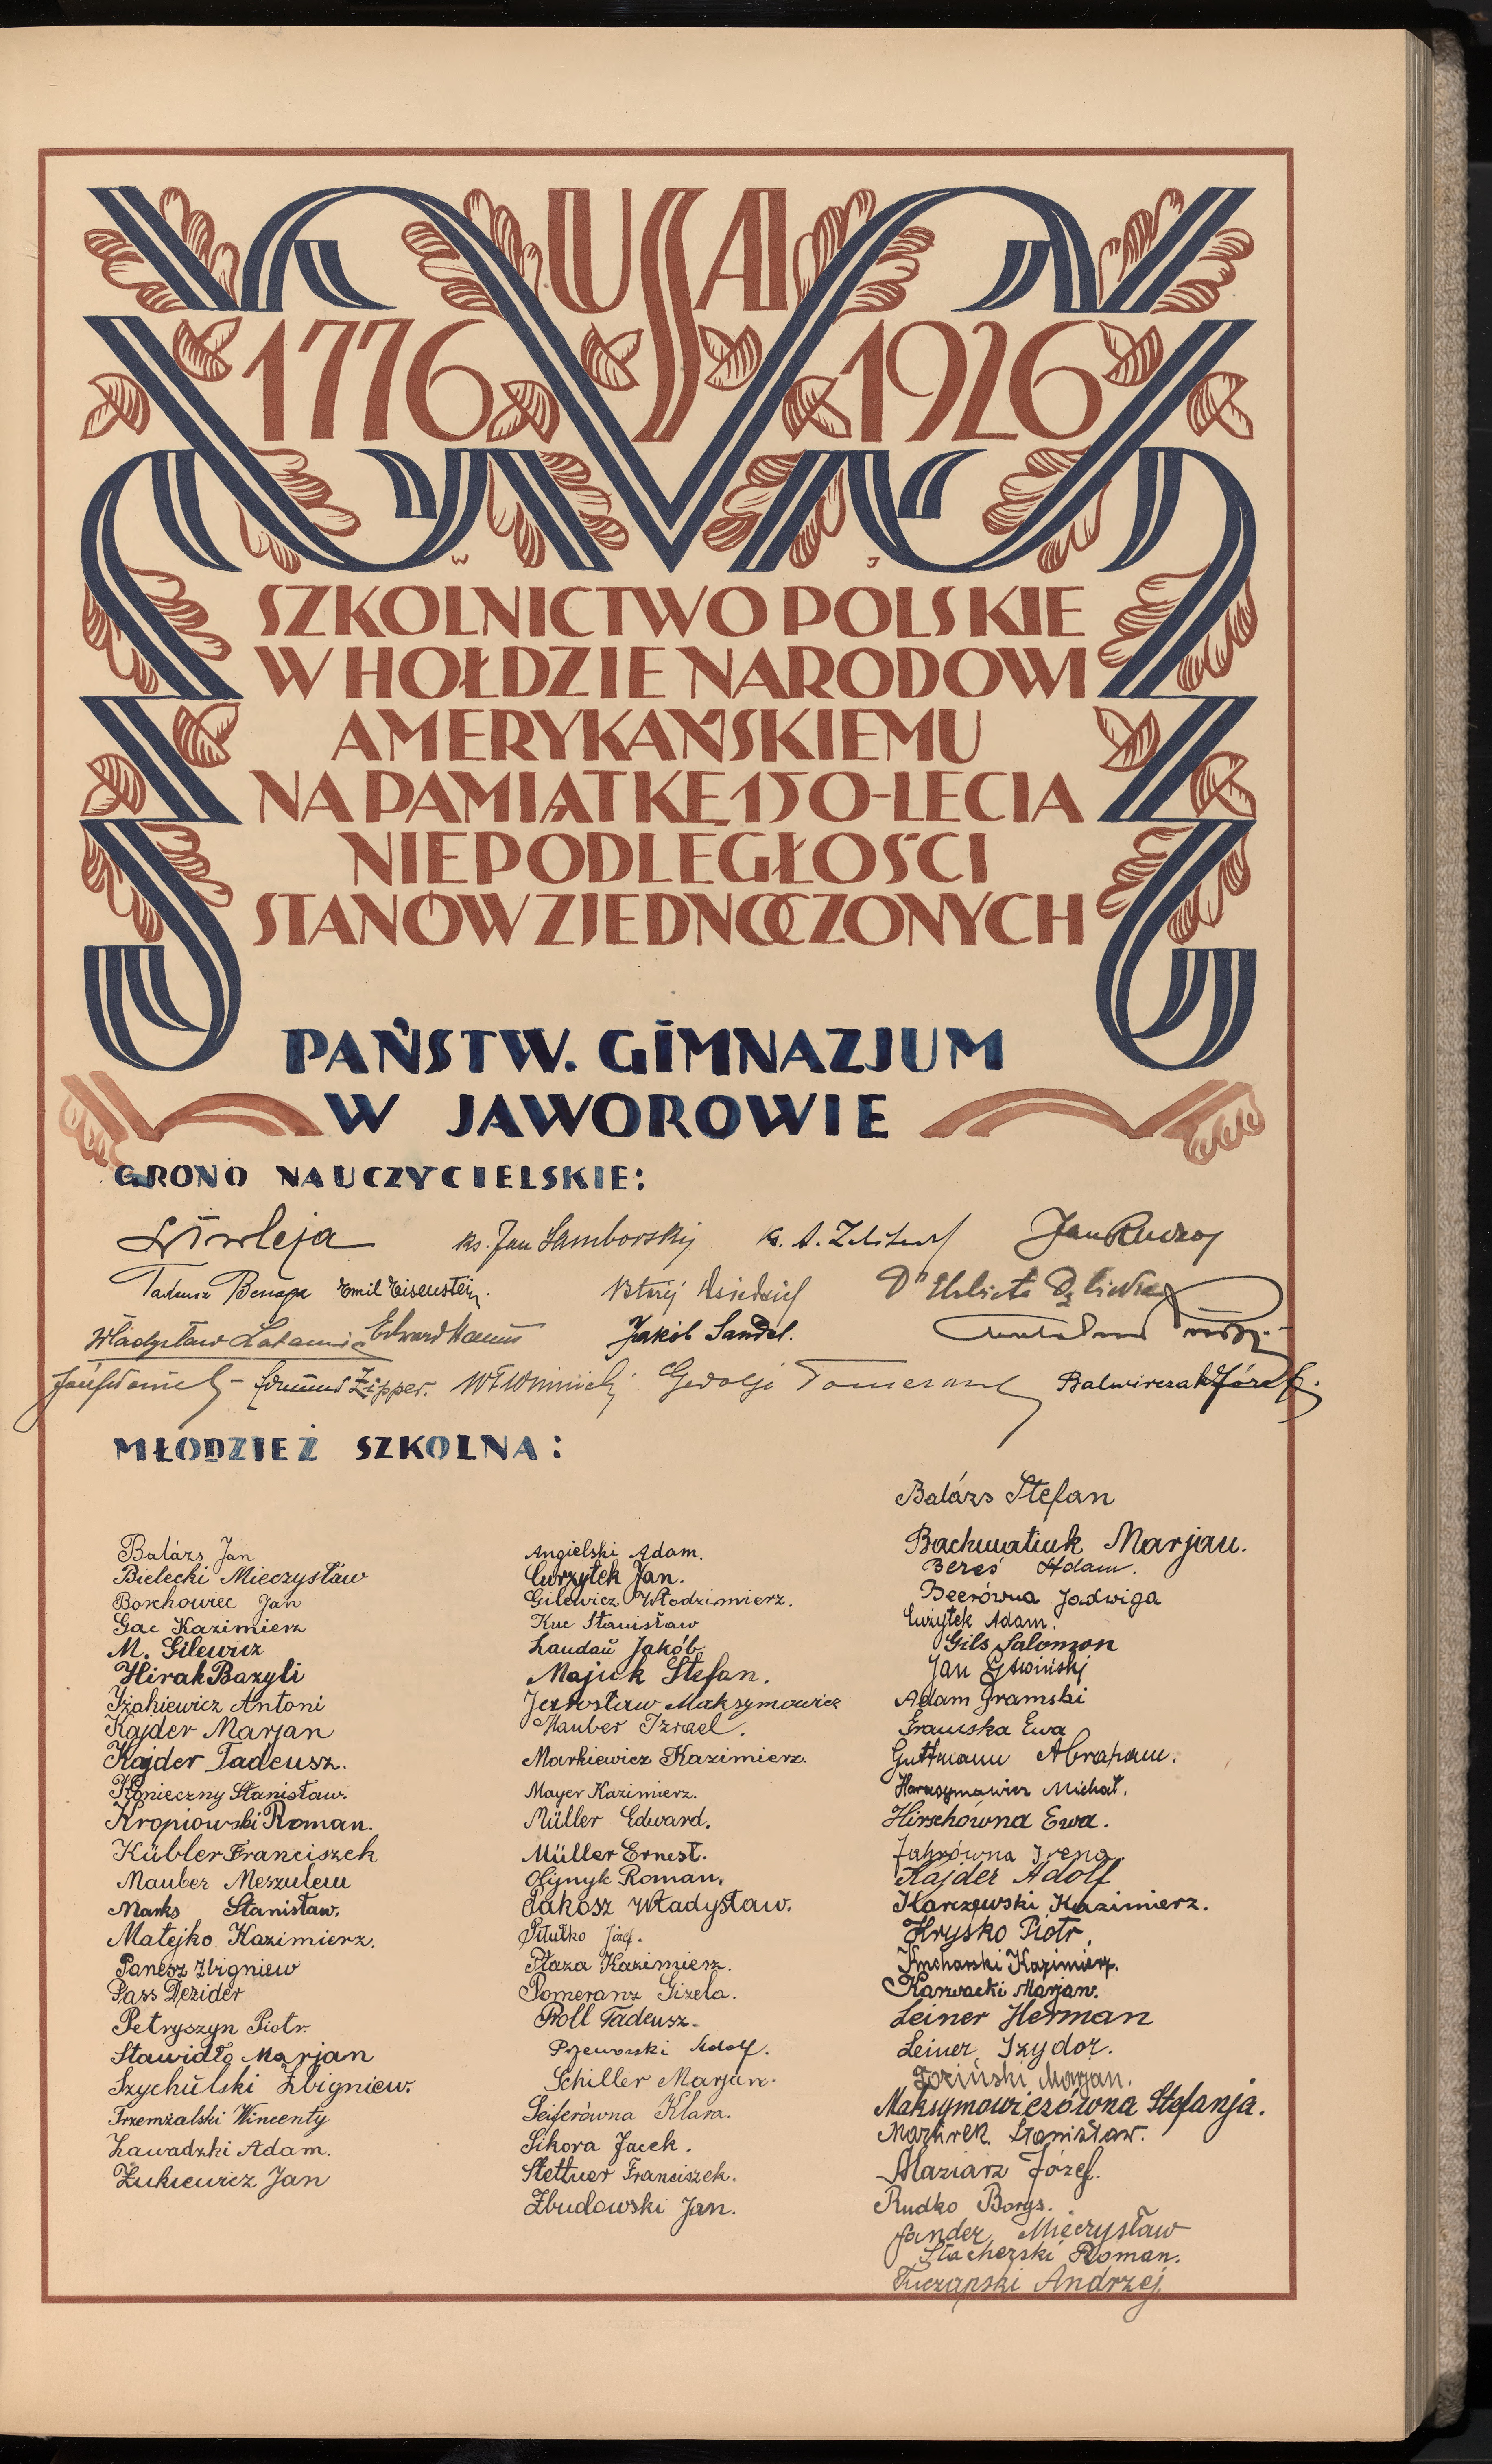 USA
1776 1926
W J
SZKOLNICTWO POLSKIE
W HOŁDZIE NARODOWI
AMERYKAŃSKIEMU
NA PAMIĄTKĘ 150-LECIA
NIEPODLEGŁOŚCI
STANÓW ZJEDNOCZONYCH
PAŃSTW. GIMNAZJUM
W JAWOROWIE
GRONO NAUCZYCIELSKIE:
ks. Jan Samborskij ks. A. Jan
Tadeusz Emil Eisenstein.
Władysław Edward Jakób Sandel.
Edmund Zipper. Józef
MŁODZIEŻ SZKOLNA:
Balázs Jan
Bielecki Mieczysław
Borchowiec Jan
Gac Kazimierz
M. Gilewicz
Hirak Bazyli
Iżakiewicz Antoni
Kajder Marjan
Kajder Tadeusz.
Konieczny Stanisław.
Kropiowski Roman.
Kübler Franciszek
Mauber Meszulem
Marks Stanisław.
Matejko Kazimierz.
Panesz Zbigniew
Pass Dezider
Petryszyn Piotr.
Stawidło Marjan
Szychulski Zbigniew.
Trzemżalski Wincenty
Zawadzki Adam.
Żukiewicz Jan
Angielski Adam.
Curzytek Jan.
Gilewicz Włodzimierz.
Kuc Stanisław
Landau Jakób
Majuk Stefan.
Jarosław Maksymowicz
Mauber Izrael.
Markiewicz Kazimierz.
Mayer Kazimierz.
Müller Edward.
Müller Ernest.
Olijnyk Roman.
Pakosz Władysław.
Piłutko Józef.
Płaza Kazimierz.
Pomeranz Gizela.
Proll Tadeusz.
Przeworski Adolf.
Schiller Marjan.
Seiferówna Klara.
Sikora Jacek.
Stettner Franciszek.
Zbudowski Jan.
Balázs Stefan
Bachmatiuk Marjan.
Bereś Adam.
Beerówna Jadwiga
Adam.
Gils Salomon
Jan
Adam Gramski
Gramska Ewa
Guttmann Abraham.
Harasymowicz Michał.
Hirschówna Ewa.
Jahrówna Irena.
Kajder Adolf
Karczewski Kazimierz.
Hryśko Piotr.
Kucharski Kazimierz.
Karwacki Marjan.
Leiner Herman
Leiner Izydor.
Łoziński Marjan.
Maksymowiczówna Stefanja.
Mazurek Stanisław.
Maziarz Józef.
Rudko Borys.
Sander Mieczysław
Stacherski Roman.
Tuczapski Andrzej